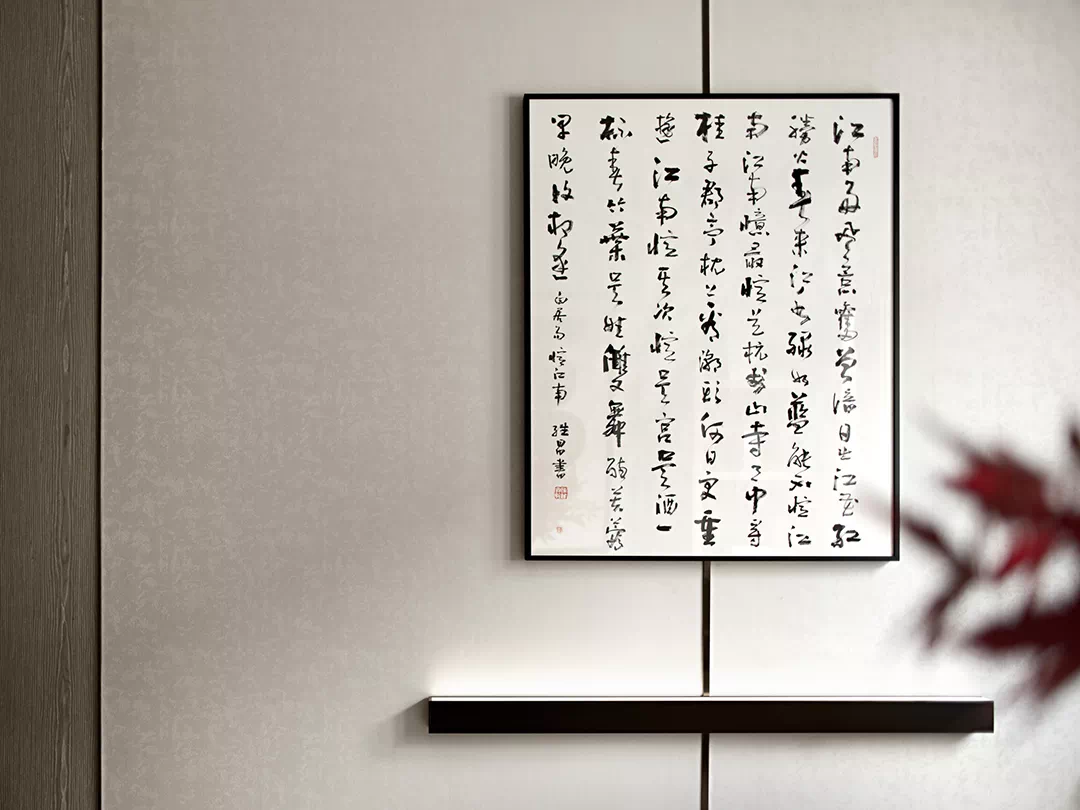 江南好風景舊曾諳日出江花紅
勝火春來江水綠如藍能不憶江
南江南憶最憶是杭州山寺月中尋
桂子郡亭枕上看潮頭何日更重
遊江南憶其次憶吳宮吳酒一
杯春竹葉吳娃雙舞醉芙蓉
早晚復相逢 白居易憶江南 繼昌書